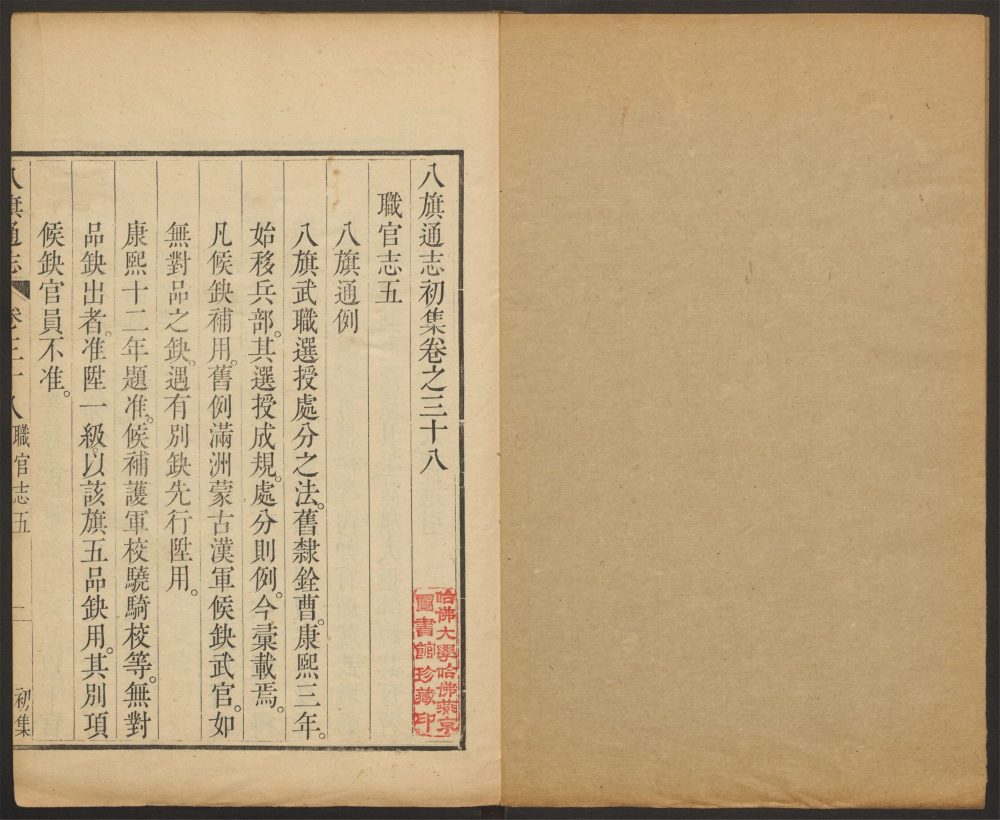 八旗通志初集卷之三十八
哈佛大學哈佛燕京
圖書館珍藏印
職官志五
八旗通例
八旗武職選授處分之法。舊隸銓曹。康熙三年。
始移兵部。其選授成規。處分則例。今彙載焉。
凡候缺補用。舊例滿洲蒙古漢軍候缺武官。如
無對品之缺。遇有別缺先行陞用。
康熙十二年題准。候補護軍校驍騎校等。無對
品缺出者。准陞一級。以該旗五品缺用。其別項
候缺官員不准。
八旗通志 卷三十八 職官志五 一 初集